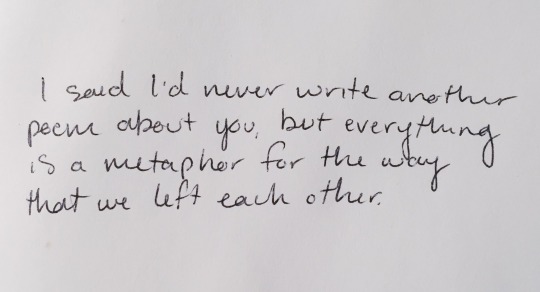 I said I'd never write another
poem about you, but everything
is a metaphor for the way
that we left each other.